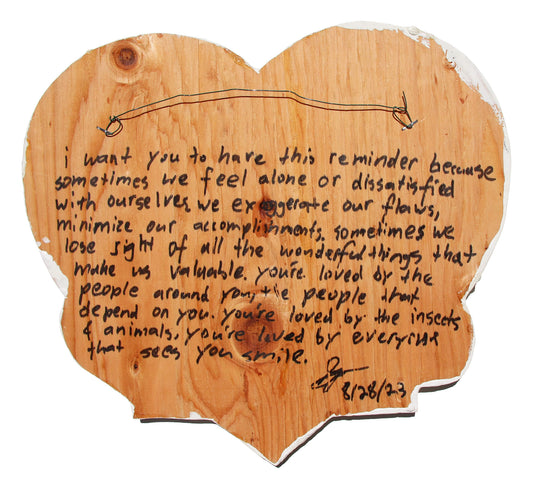 i want you to have this reminder because
sometimes we feel alone or dissatisfied
with ourselves, we exaggerate our flaws,
minimize our accomplishments, sometimes we
lose sight of all the wonderful things that
make us valuable. you're loved by the
people around you, the people that
depend on you. you're loved by the insects
& animals, you're loved by everyone
that sees you smile.
8/28/23